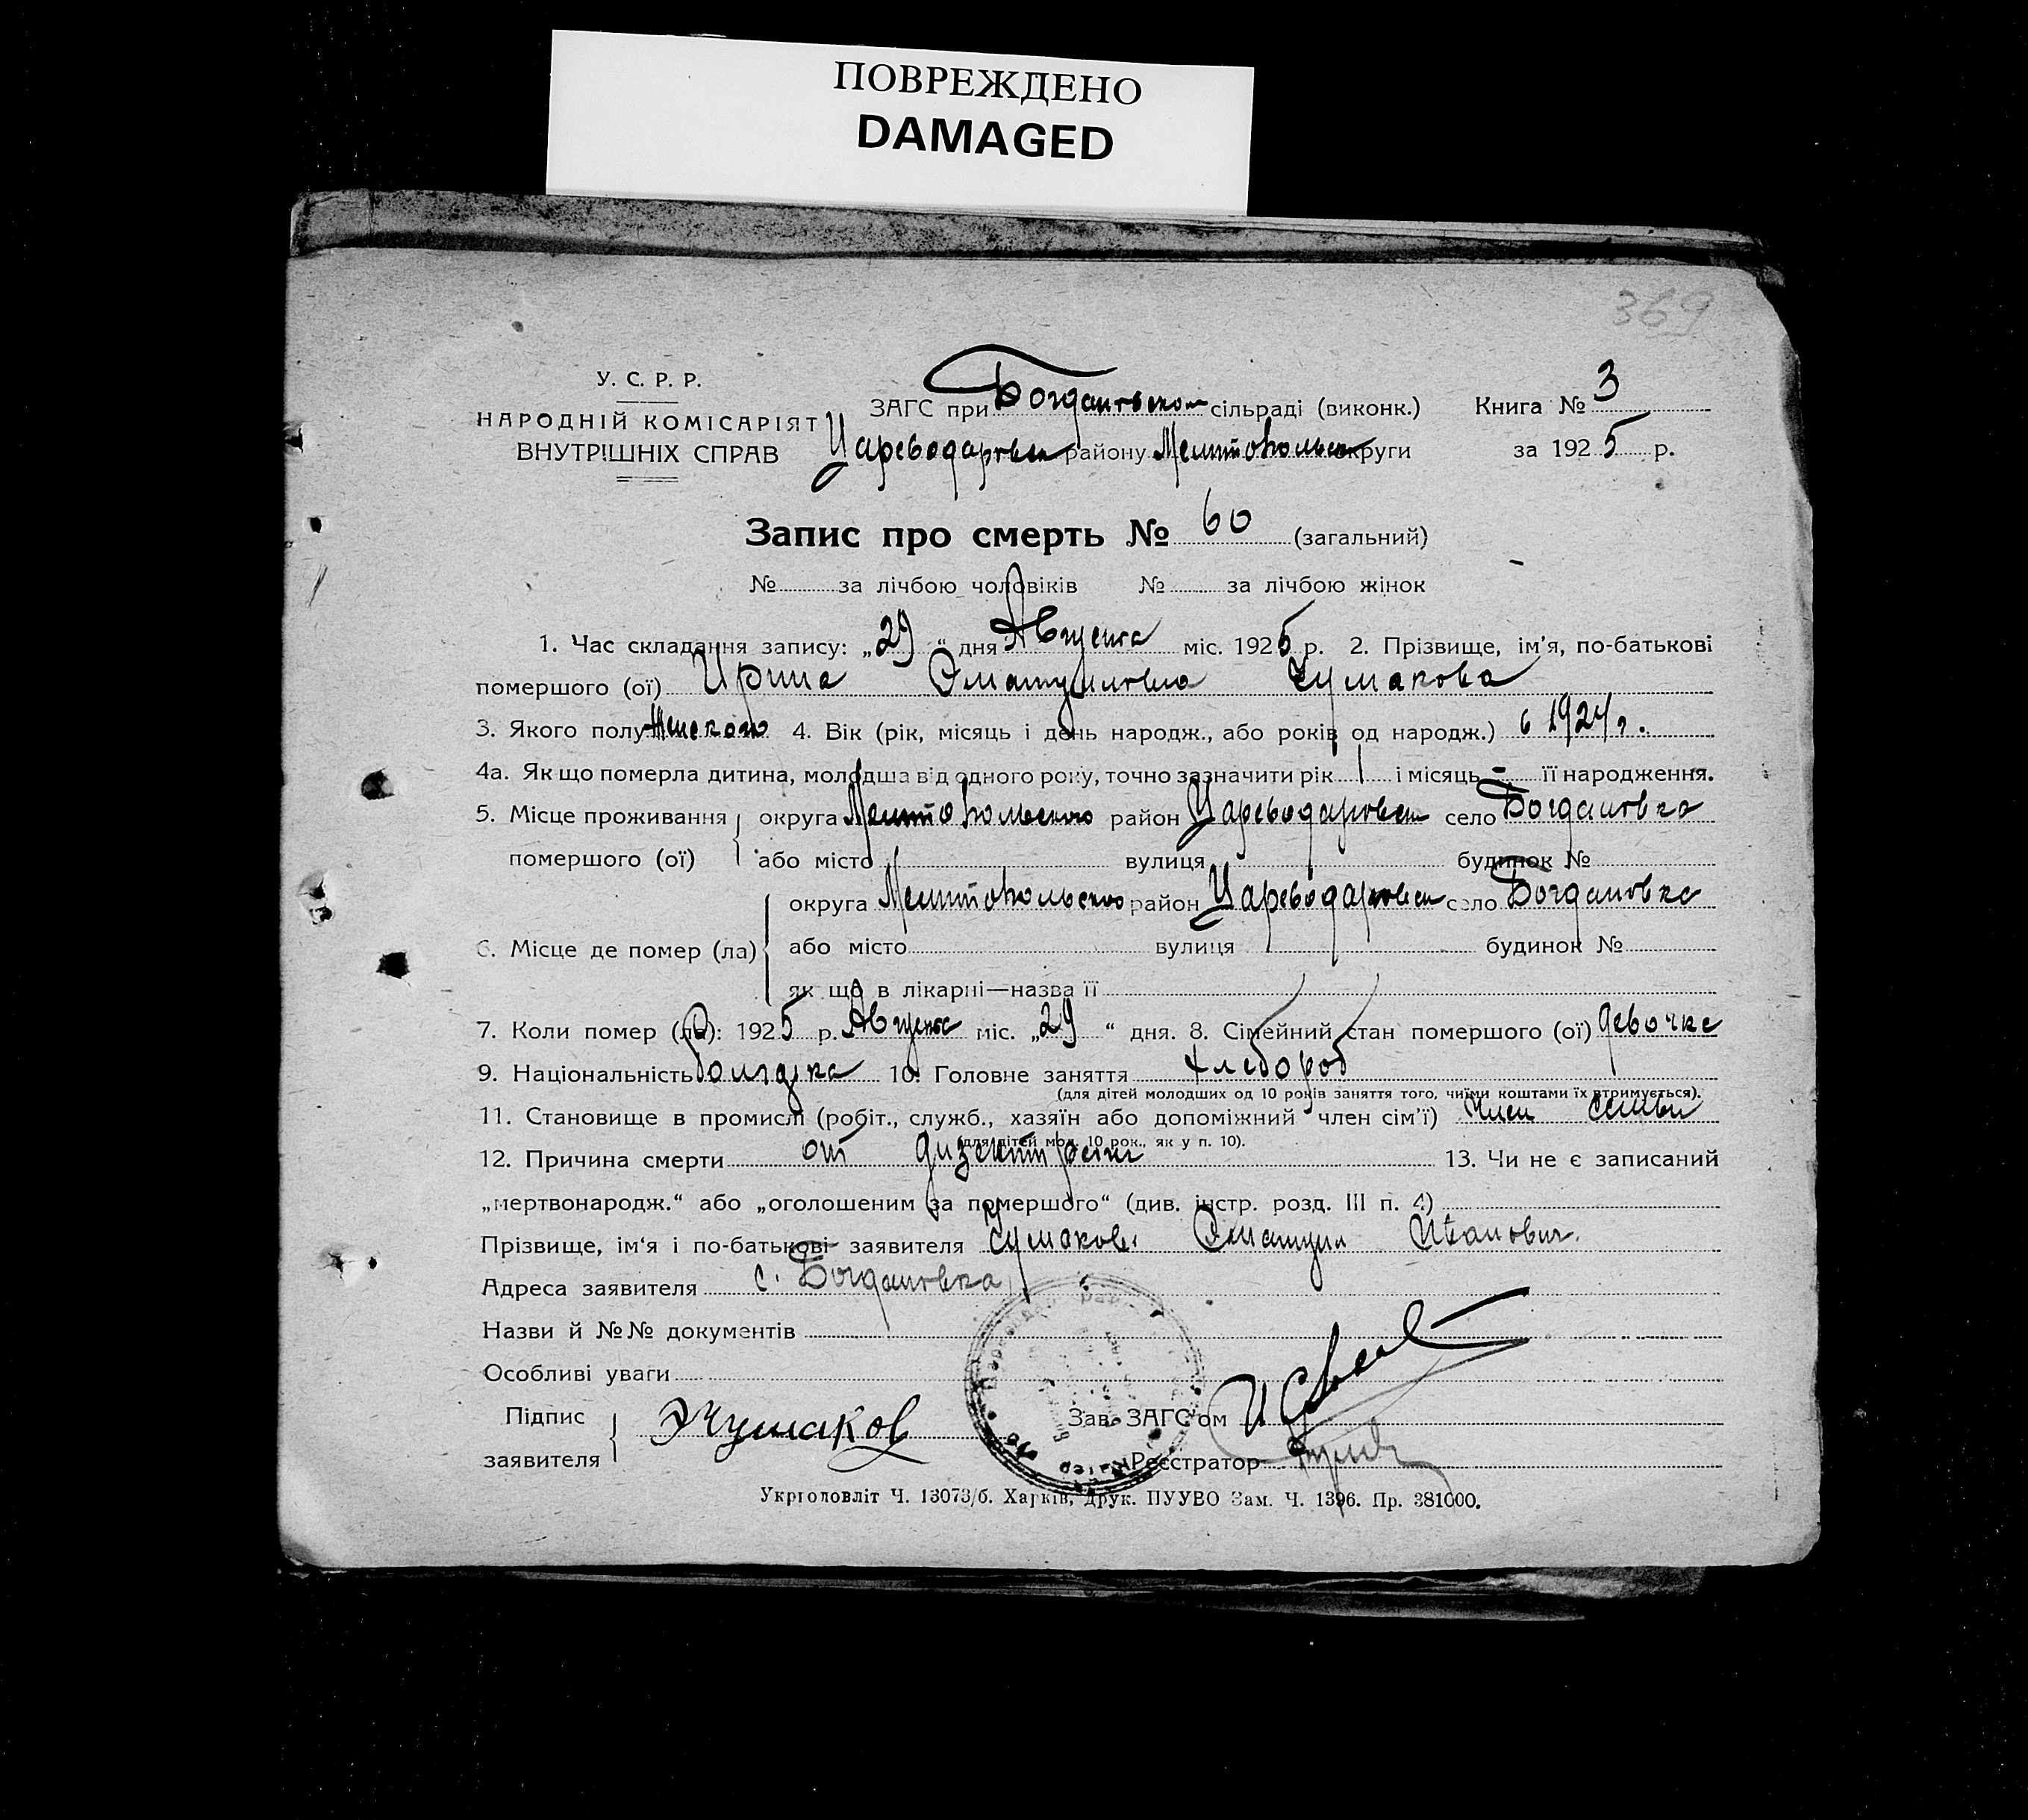 ПОВРЕЖДЕНО
DAMAGED
369
У. С. Р. Р.
НАРОДНІЙ КОМІСАРІЯТ
ВНУТРІШНІХ СПРАВ
ЗАГС при Богдановском сільраді (виконк.)
Цареводаровск району Мелитопольск округи
Книга № 3
за 1925 р.
Запис про смерть № 60 (загальний)
№ за лічбою чоловіків № за лічбою жінок
1. Час складання запису: „29“ дня Августа міс. 1925 р. 2. Прізвище, ім'я, по-батькові
помершого (ої) Ирина Чумакова
3. Якого полу Женского 4. Вік (рік, місяць і день народж., або років од народж.) в 1924 г.
4а. Як що померла дитина, молодша від одного року, точно зазначити рік 1 і місяць - її народження.
5. Місце проживання округа Мелитопольского район Цареводаровск село Богдановка
помершого (ої) або місто вулиця будинок №
округа Мелитопольского район Цареводаровск село Богдановка
6. Місце де помер (ла) або місто вулиця будинок №
як що в лікарні—назва її
7. Коли помер (ла): 1925 р. Августа міс. „29“ дня. 8. Сімейний стан помершого (ої) девочка
9. Національність болгарка 10. Головне заняття хлебороб
(для дітей молодших од 10 років заняття того, чиїми коштами їх втримується).
11. Становище в промислі (робіт., служб., хазяїн або допоміжний член сім'ї) член семьи
(для дітей мол. 10 рок., як у п. 10).
12. Причина смерти от дизентерии 13. Чи не є записаний
„мертвонародж.“ або „оголошеним за помершого“ (див. інстр. розд. III п. 4)
Прізвище, ім'я і по-батькові заявителя Чумаков Иванович.
Адреса заявителя с. Богдановка
Назви й №№ документів
Особливі уваги
Підпис заявителя Чумаков
Зав. ЗАГС'ом
Реєстратор
Укрголовліт Ч. 13073/б. Харків, Друк. ПУУВО Зам. Ч. 1396. Пр. 381000.